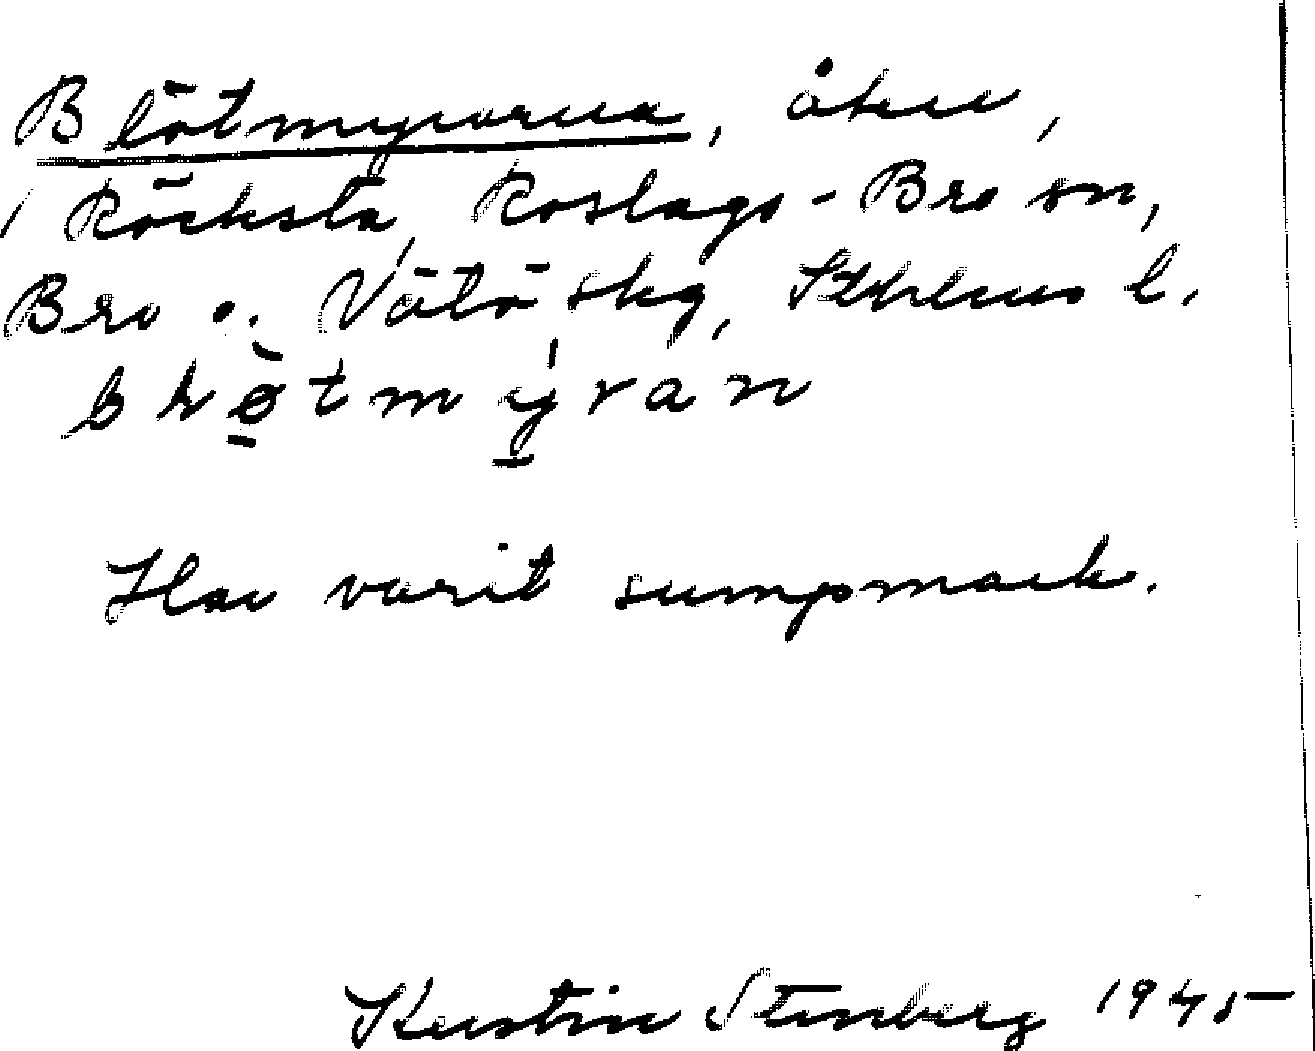 Blötmyrorna, åker,
i Röcksta, Roslags-Bro sn,
Bro o. Vätö skg, Sthlms l.
Har varit sumpmark.
Kerstin Stenberg 1945